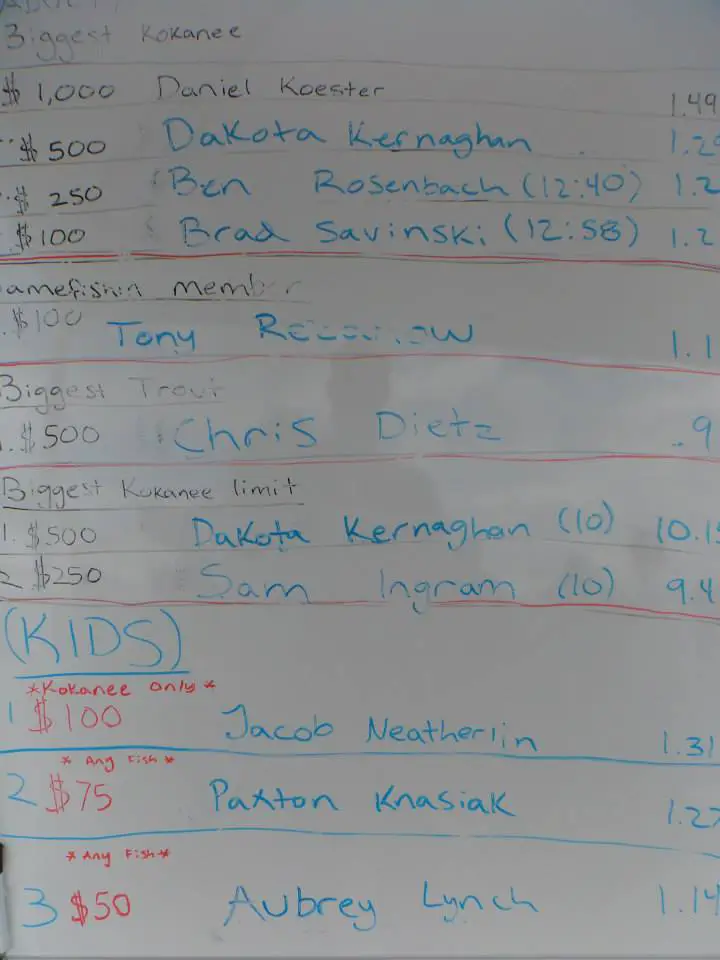 Biggest Kokanee
$ 1,000 Daniel Koester 1.49
$ 500 Dakota Kernaghan 1.2
$ 250 Ben Rosenbach (12:40) 1.2
$100 Brad Savinski (12:58) 1.2
amefishin member
$100 Tony 1.1
Biggest Trout
1. $500 Chris Dietz .9
Biggest Kokanee limit
1. $500 Dakota Kernaghan (10) 10.1
2 $250 Sam Ingram (10) 9.4
(KIDS)
*Kokanee only*
1 $100 Jacob Neatherlin 1.31
* Any Fish *
2 $75 Paxton Knasiak 1.27
* Any Fish *
3 $50 Aubrey Lynch 1.14